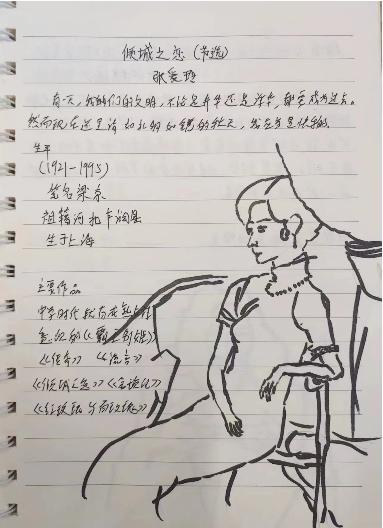 倾城之恋(节选)
张爱玲
有一天,我们的文明,不论是升华还是浮华,都要成为过去。
然而现在还是清如水明如镜的秋天,我应当是快乐的。
生平
(1921-1995)
笔名梁京
祖籍河北丰润县
生于上海
主要作品
中学时代就有成
《霸王别姬》
《传奇》 《流言》
《倾城之恋》《金锁记》
《红玫瑰与白玫瑰》